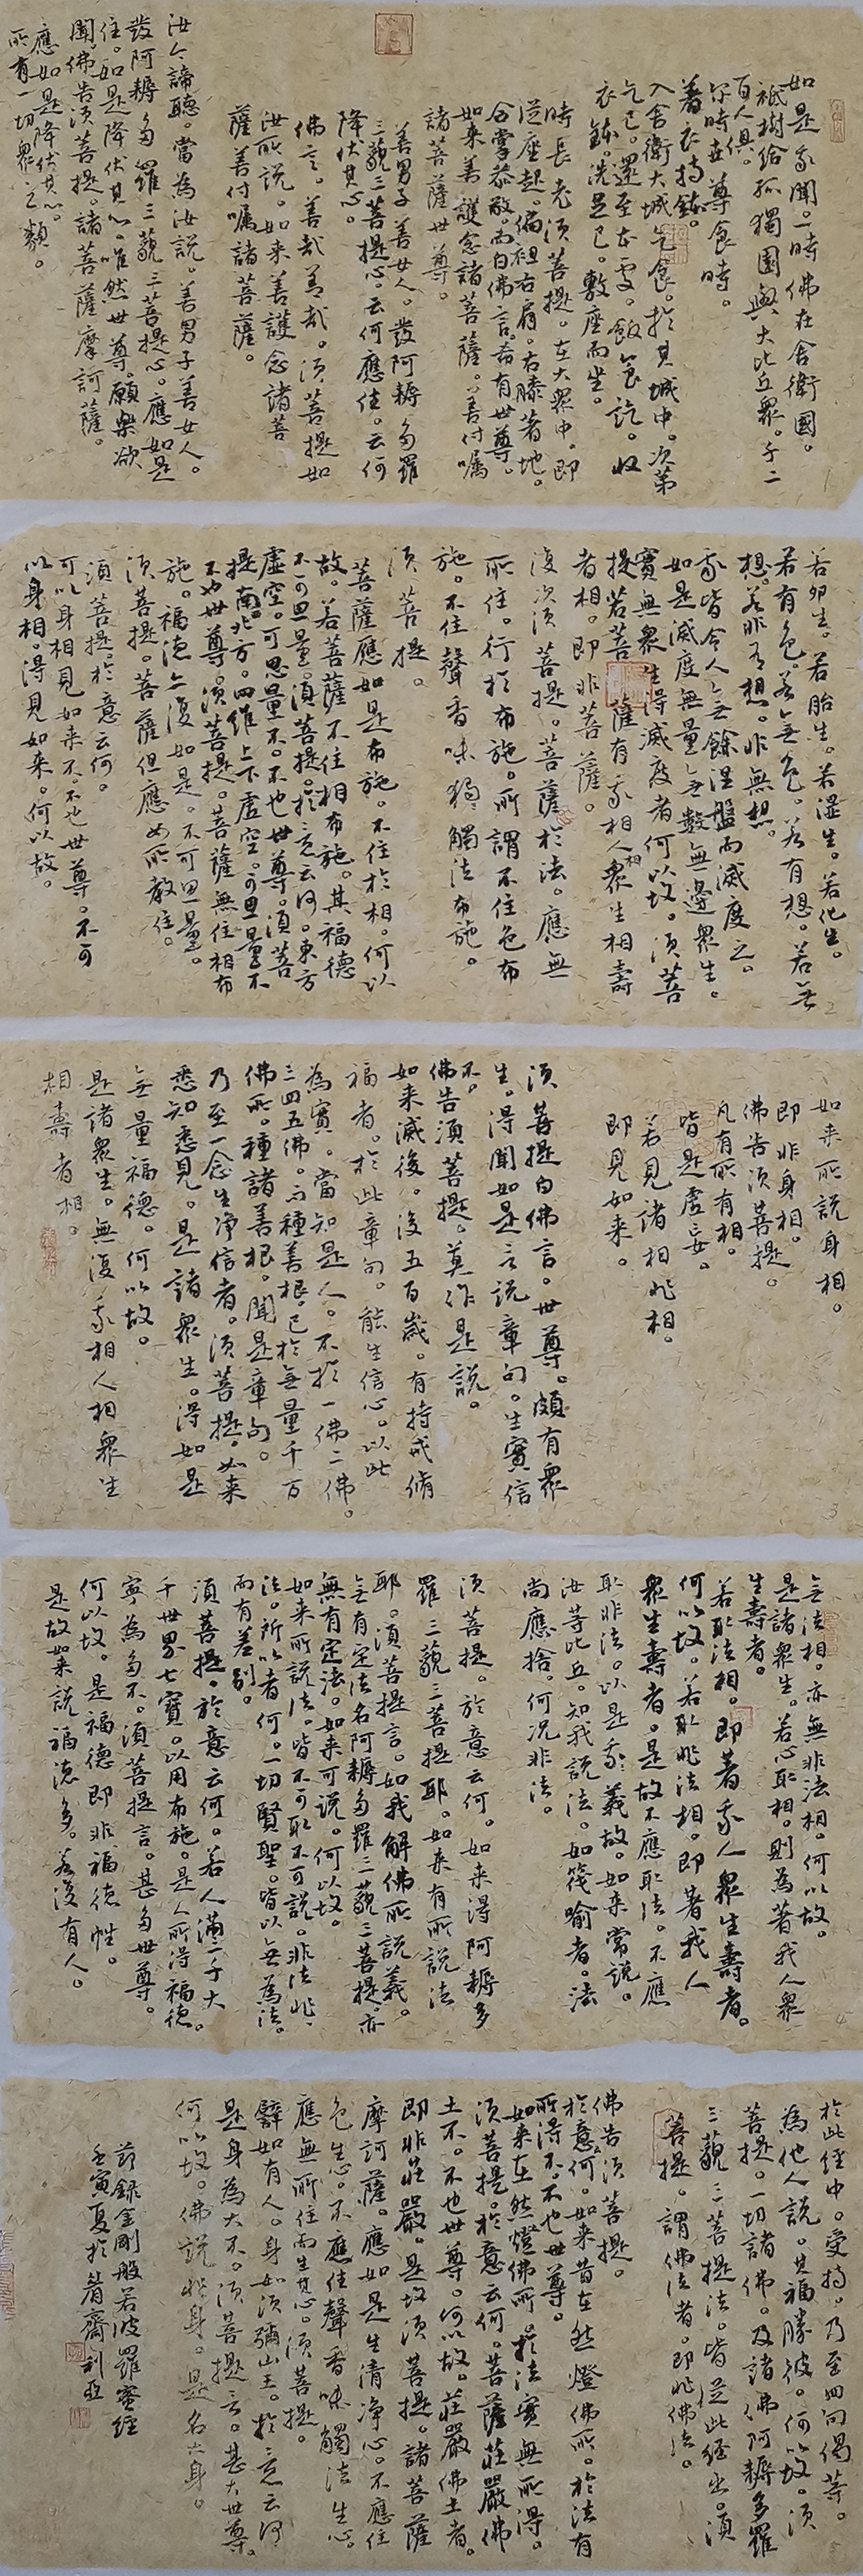 如是我聞。一時佛在舍衛國。
祇樹給孤獨園與大比丘眾。千二
百人俱。
尔時世尊食時。
著衣持鉢。
入舍衛大城乞食。於其城中。次第
乞已。還至本處。飯食訖。收
衣鉢。洗足已。敷座而坐。
時長老須菩提。在大眾中。即
從座起。偏袒右肩。右膝著地。
合掌恭敬而白佛言。希有世尊。
如来善護念諸菩薩。善付囑
諸菩薩世尊。
善男子善女人。發阿耨多羅
三藐三菩提心。云何應住。云何
降伏其心。
佛言。善哉善哉。須菩提如
汝所説。如来善護念諸菩
薩善付囑諸菩薩。
汝今諦聽。當為汝説。善男子善女人。
發阿耨多羅三藐三菩提心。應如是
住。如是降伏其心。唯然世尊。願樂欲
聞。佛告須菩提。諸菩薩摩訶薩。
應如是降伏其心。
所有一切眾之類。
若卵生。若胎生。若濕生。若化生。
若有色。若无色。若有想。若无
想。若非有想。非無想。
我皆令入无餘涅盤而滅度之。
如是滅度無量无數無邊眾生。
實無眾生得滅度者何以故。須菩
提若菩薩有我相人相眾生相壽
者相。即非菩薩。
復次須菩提。菩薩於法。應無
所住。行於布施。所謂不住色布
施。不住聲香味獨觸法布施。
須菩提。
菩薩應如是布施。不住於相。何以
故。若菩薩不住相布施。其福德
不可思量。須菩提。於意云何。東方
虛空。可思量不。不也世尊。須菩
提南北方。四維上下虛空。可思量不
不也世尊。須菩提。菩薩無住相布
施。福德亦復如是。不可思量。
須菩提。菩薩但應如所教住。
須菩提。於意云何。
可以身相見如来不。不也世尊。不可
以身相。得見如来。何以故。
如来所説身相。
即非身相。
佛告須菩提。
凡有所有相。
皆是虛妄。
若見諸相非相。
即見如来。
須菩提白佛言。世尊。頗有眾
生。得聞如是言説章句。生實信
不。
佛告須菩提。莫作是説。
如来滅後。後五百歲。有持戒脩
福者。於此章句。能生信心。以此
為實。當知是人。不於一佛二佛。
三四五佛。而種善根。已於无量千百
佛所。種諸善根。聞是章句。
乃至一念生净信者。須菩提。如来
悉知悉見。是諸眾生。得如是
无量福德。何以故。
是諸眾生。無復我相人相眾生
相壽者相。
无法相。亦無非法相。何以故。
是諸眾生。若心取相。則為著我人眾
生壽者。
若取法相。即著我人眾生壽者。
何以故。若取非法相。即著我人
眾生壽者。是故不應取法。不應
取非法。以是義故。如来常説。
汝等比丘。知我説法。如筏喻者。法
尚應捨。何況非法。
須菩提。於意云何。如来得阿耨多
羅三藐三菩提耶。如来有所説法
耶。須菩提言。如我解佛所説義。
无有定法名阿耨多羅三藐三菩提。亦
無有定法。如来可説。何以故。
如来所説法。皆不可取不可説。非法非
法。所以者何。一切賢聖。皆以无為法。
而有差別。
須菩提。於意云何。若人滿三千大
千世界七寶。以用布施。是人所得福德。
寧為多不。須菩提言。甚多世尊。
何以故。是福德即非福德性。
是故如来説福德多。若復有人。
於此經中。受持。乃至四句偈等。
為他人説。其福勝彼。何以故。須
菩提。一切諸佛。及諸佛阿耨多羅
三藐三菩提法。皆從此經出。須
菩提。謂佛法者。即非佛法。
佛告須菩提。
於意何。如来昔在然燈佛所。於法有
所得不。不也世尊。
如来在然燈佛所。於法實無所得。
須菩提。於意云何。菩薩莊嚴佛
土不。不也世尊。何以故。莊嚴佛土者。
即非莊嚴。是故須菩提。諸菩薩
摩訶薩。應如是生清净心。不應住
色生心。不應住聲香味觸法生心。
應無所住而生其心。須菩提。
譬如有人。身如須彌山王。於意云何
是身為大不。須菩提言。甚大世尊。
何以故。佛説非身。是名大身。
節錄金剛般若波羅蜜經
壬寅夏於